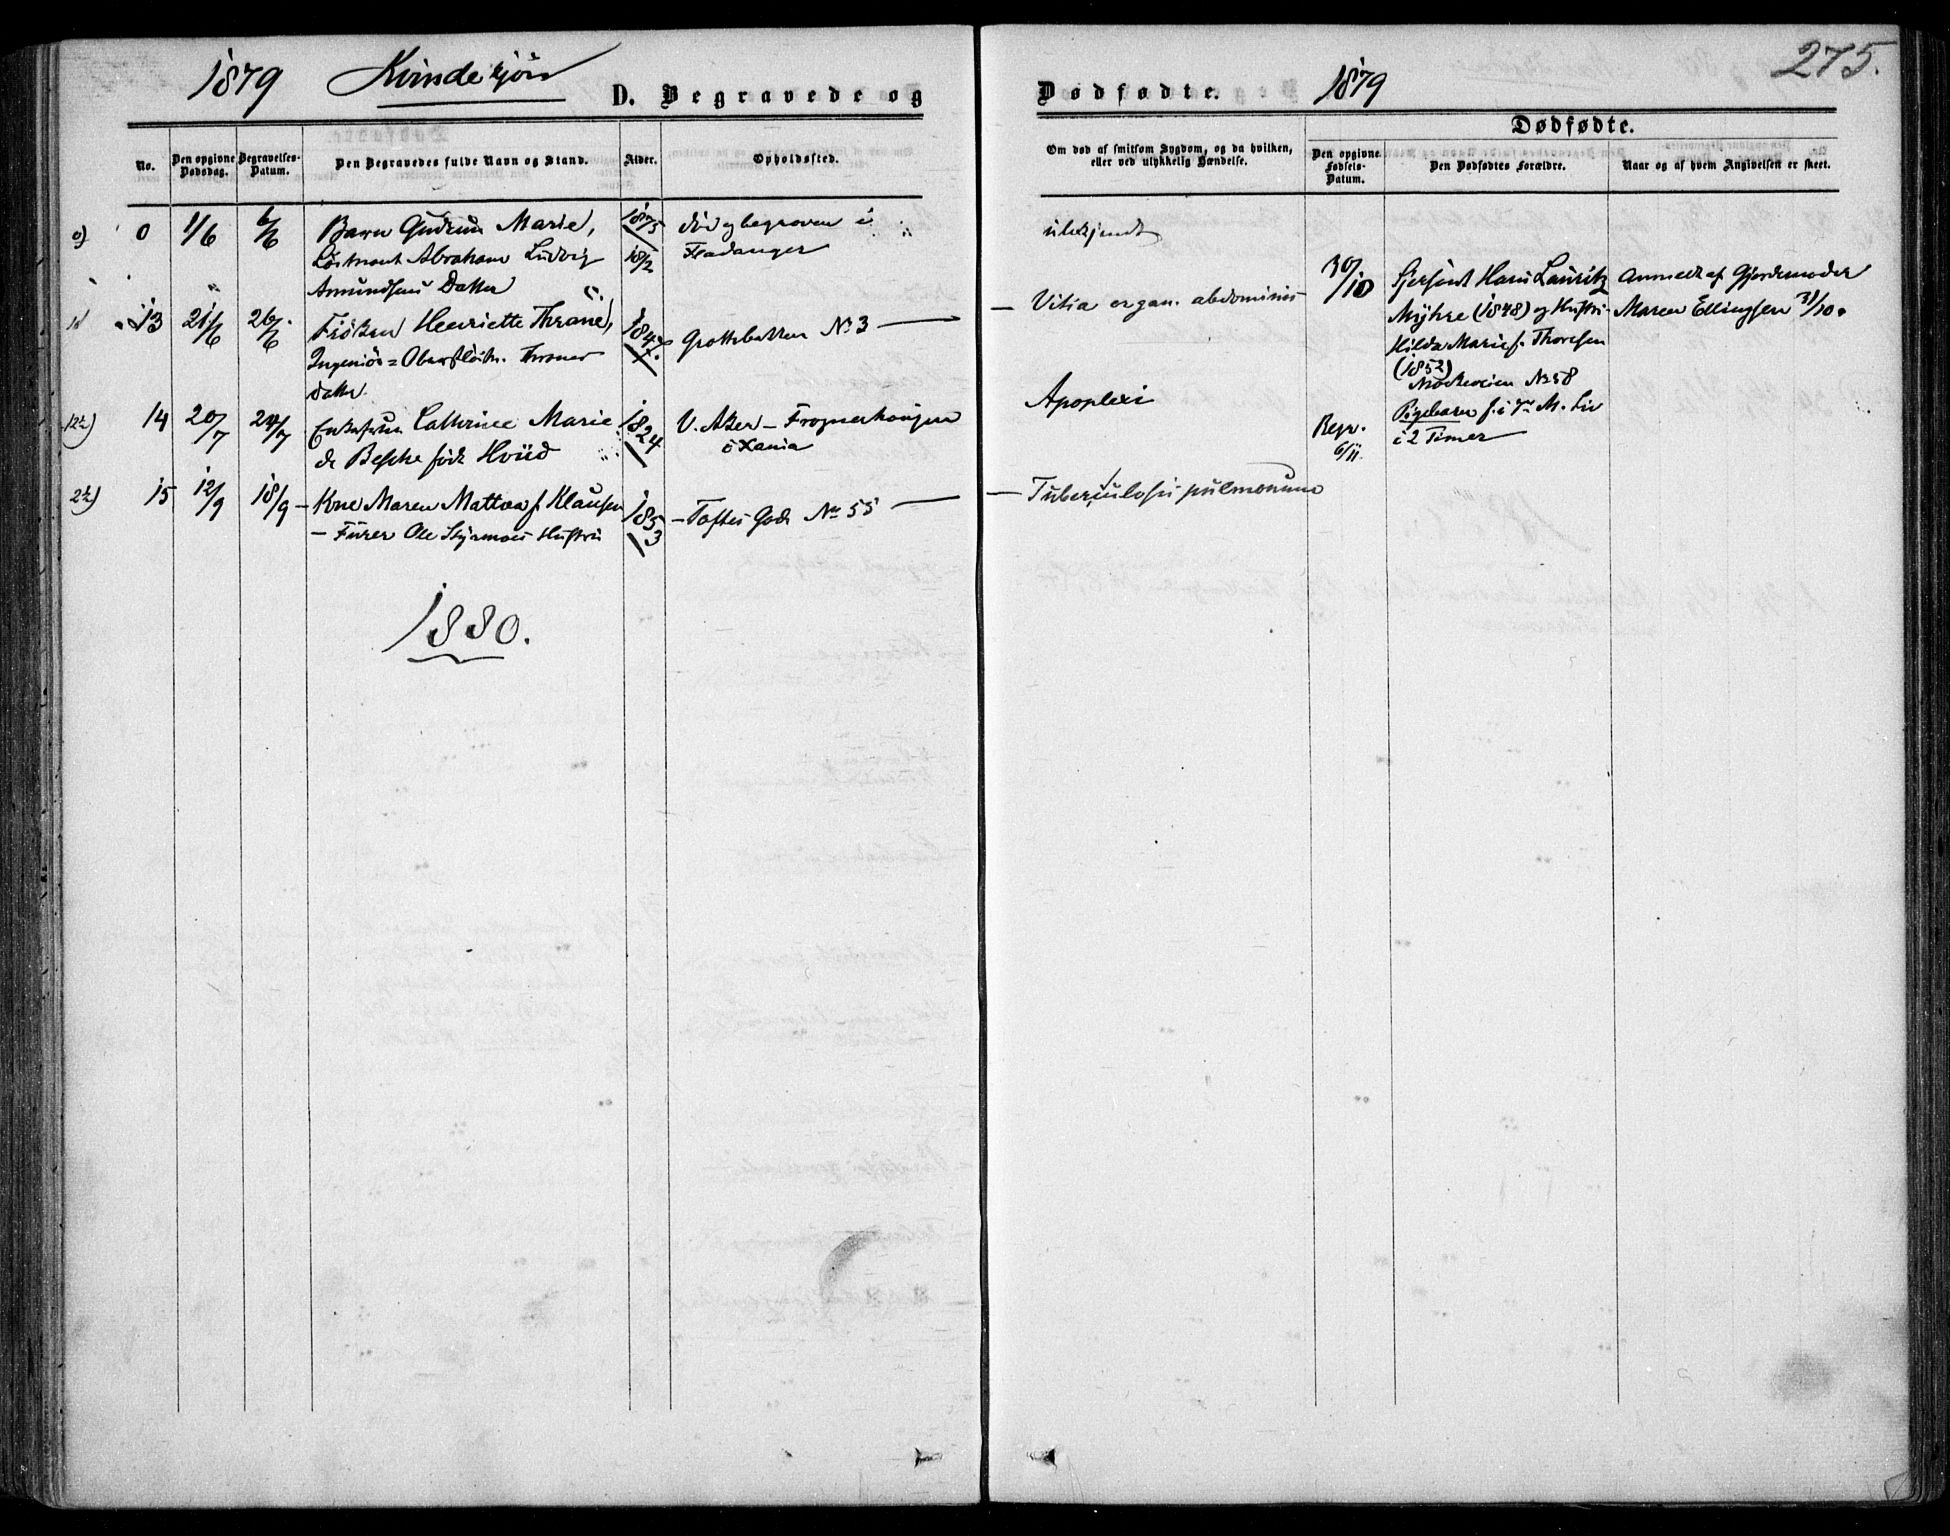 1879 Kvindekjön D. Begravede og
No. Den opgivne Dødsdag. Begravelses-Datum. Den Begravedes fulde Navn og Stand. Alder. Opholdssted.
0) 0 1/6 6/6 Barn Gudrun Marie, 1875 död og begraven i
Abraham Ludvig 18/2 Fladanger
Amundsens Datter
13 21/6 26/6 Fröken Henriette Thrane, 1847 Grottebakken No 3 —
Ingeniör = Oberstlöitn. Thranes
Datter.
14 20/7 24/7 Enkefrue Cathrine Marie 1824 V. Aker — Frognerhaugen
de Besche född Hviid Xania
2½) 15 12/9 18/9 — Kone Maren Mathea f. Klausen 1853 — Toftes Gade No 55 —
— Furer Ole Hustru
1880.
Dødfødte. 1879
275.
Dødfødte.
Om død af smitsom Sygdom, og da hvilken,
eller ved ulykkelig Hændelse.
Den opgivne Fødsels-Datum. Den Dødfødtes Forældre. Naar og af hvem Angivelsen er skeet.
ubekjendt
— Vitia organ. abdominis
Apoplexi
— Tuberculosis pulmonum
30/10 Sjersant Hans Lauritz Anmeldt af Gjordemoder
Myhre (1848) og Hustru Maren Ellingsen 31/10.
Hilda Marie f. Thoresen
(1852)
No 58
Begr. 6/11. Pigebarn f. i 7de M. Liv
i 2 Timer